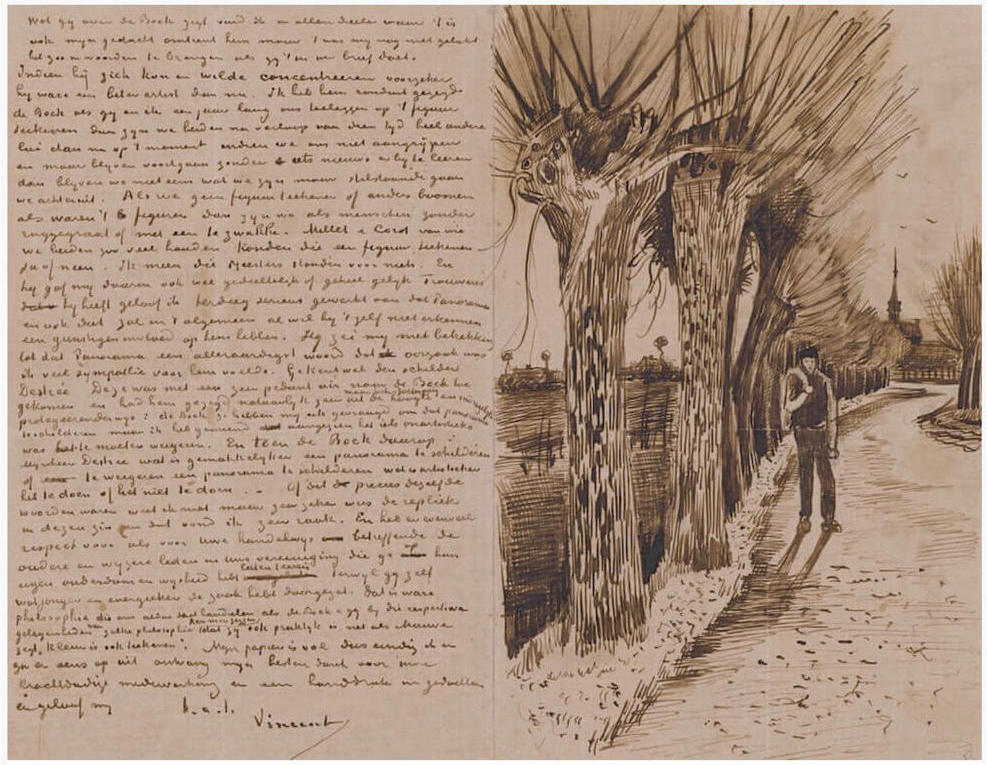 Wat gij over de Bock zegt vind ik in allen deele waar 't is
ook mijn gedacht omtrent hem maar 't was mij nog niet gelukt
het zoo in woorden te brengen als gij 't in uw brief doet.
Indien hij zich kon en wilde concentreeren voorzeker
hij ware een beter artist dan nu. Ik heb hem ronduit gezegd
de Bock als gij en ik een jaar lang ons toeleggen op 't figuur
teekenen dan zijn we beiden na verloop van dien tijd heel andere
lui dan nu op 't moment indien we ons niet aangrijpen
en maar blijven voortgaan zonder iets nieuws er bij te leeren
dan blijven we niet eens wat we zijn maar stilstaande gaan
we achteruit. Als we geen figuur teekenen of anders boomen
als waren 't figuren dan zijn we als menschen zonder
ruggegraat of met een te zwakke. Millet & Corot van wie
we beiden zoo veel houden konden die een figuur teekenen
ja of neen. Ik meen die Meesters stonden voor niets. En
hij gaf mij daarin ook wel gedeeltelijk of geheel gelijk Trouwens
hij heeft geloof ik terdeeg serieus gewerkt aan dat Panorama
en ook dat zal in 't algemeen al wil hij 't zelf niet erkennen
een gunstigen invloed op hem hebben. Hij zei mij met betrekking
tot dat Panorama een alleraardigst woord dat oorzaak was
ik veel sympathie voor hem voelde. Ge kent wel den schilder
Destrée. Deze was met een zeer pedant air naar de Bock toe
gekomen en had hem gezegd natuurlijk zeer uit de hoogte en
protegeerenderwijs: de Bock ze hebben mij ook gevraagd om dat panorama
te schilderen maar ik heb gemeend aangezien het iets onartistieks
was het te moeten weigeren. En toen de Bock daarop:
mijnheer Destrée wat is gemakkelijker een panorama te schilderen
of te weigeren een panorama te schilderen wat is artistieker
het te doen of het niet te doen. — Of dit precies dezelfde
woorden waren weet ik niet meer zeer zeker was de repliek
in dezen zin en dat vond ik zeer raak. En heb er evenveel
respect voor als voor Uwe handelwijs betreffende de
oudere en wijzere leden in Uwe vereeniging die ge hun
eigen ouderdom en wijsheid hebt laten Terwijl gij zelf
wat jonger en energieker de zaak hebt doorgezet. dat is ware
philosophie die ons doet handelen als de Bock & gij bij die respectieve
gelegenheden kan men zeggen zulke philosophie dat zij ook praktijk is net als Mauve
zegt, kleur is ook teekenen. Mijn papier is vol dus eindig ik en
ga er eens op uit ontvang mijn besten dank voor uwe
krachtdadige medewerking en een handdruk in gedachten
en geloof mij
t.à.t.
Vincent